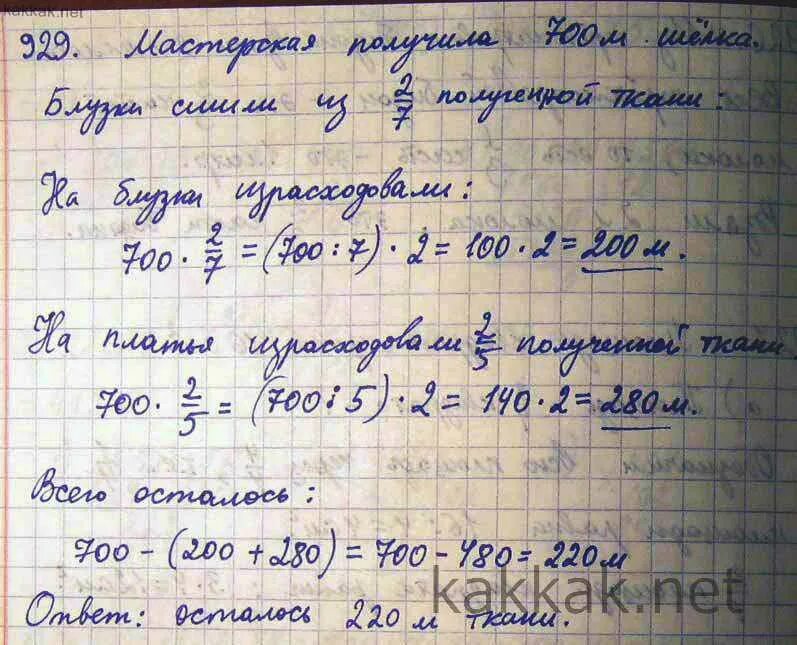 kakkak.net
929. Мастерская получила 700 м шёлка.
Блузки сшили из 2/7 полученной ткани:
На блузки израсходовали:
700 · 2/7 = (700 : 7) · 2 = 100 · 2 = 200 м.
На платья израсходовали 2/5 полученной ткани
700 · 2/5 = (700 : 5) · 2 = 140 · 2 = 280 м.
Всего осталось:
700 - (200 + 280) = 700 - 480 = 220 м
kakkak.net
Ответ: осталось 220 м ткани.